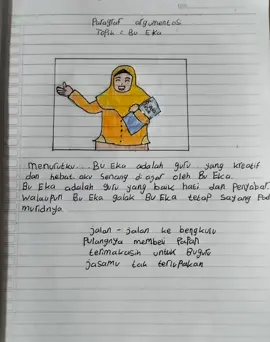 Paragraf argumentasi
Topik : Bu Eka
menurutku... Bu Eka adalah guru yang kreatif
dan hebat. aku senang di ajar oleh Bu Eka.
Bu Eka adalah guru yang baik hati dan Penyabar.
walaupun Bu Eka galak Bu Eka tetap sayang Pada
muridnya.
jalan - jalan ke bengkulu
Pulangnya membeli Papan
terimakasih untuk Buguru
jasamu tak terlupakan